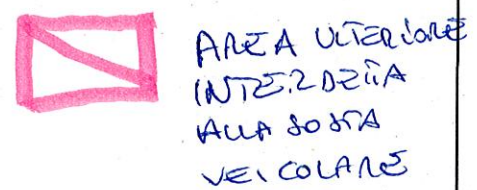 AREA ULTERIORE
INTERDETTA
ALLA SOSTA
VEICOLARE